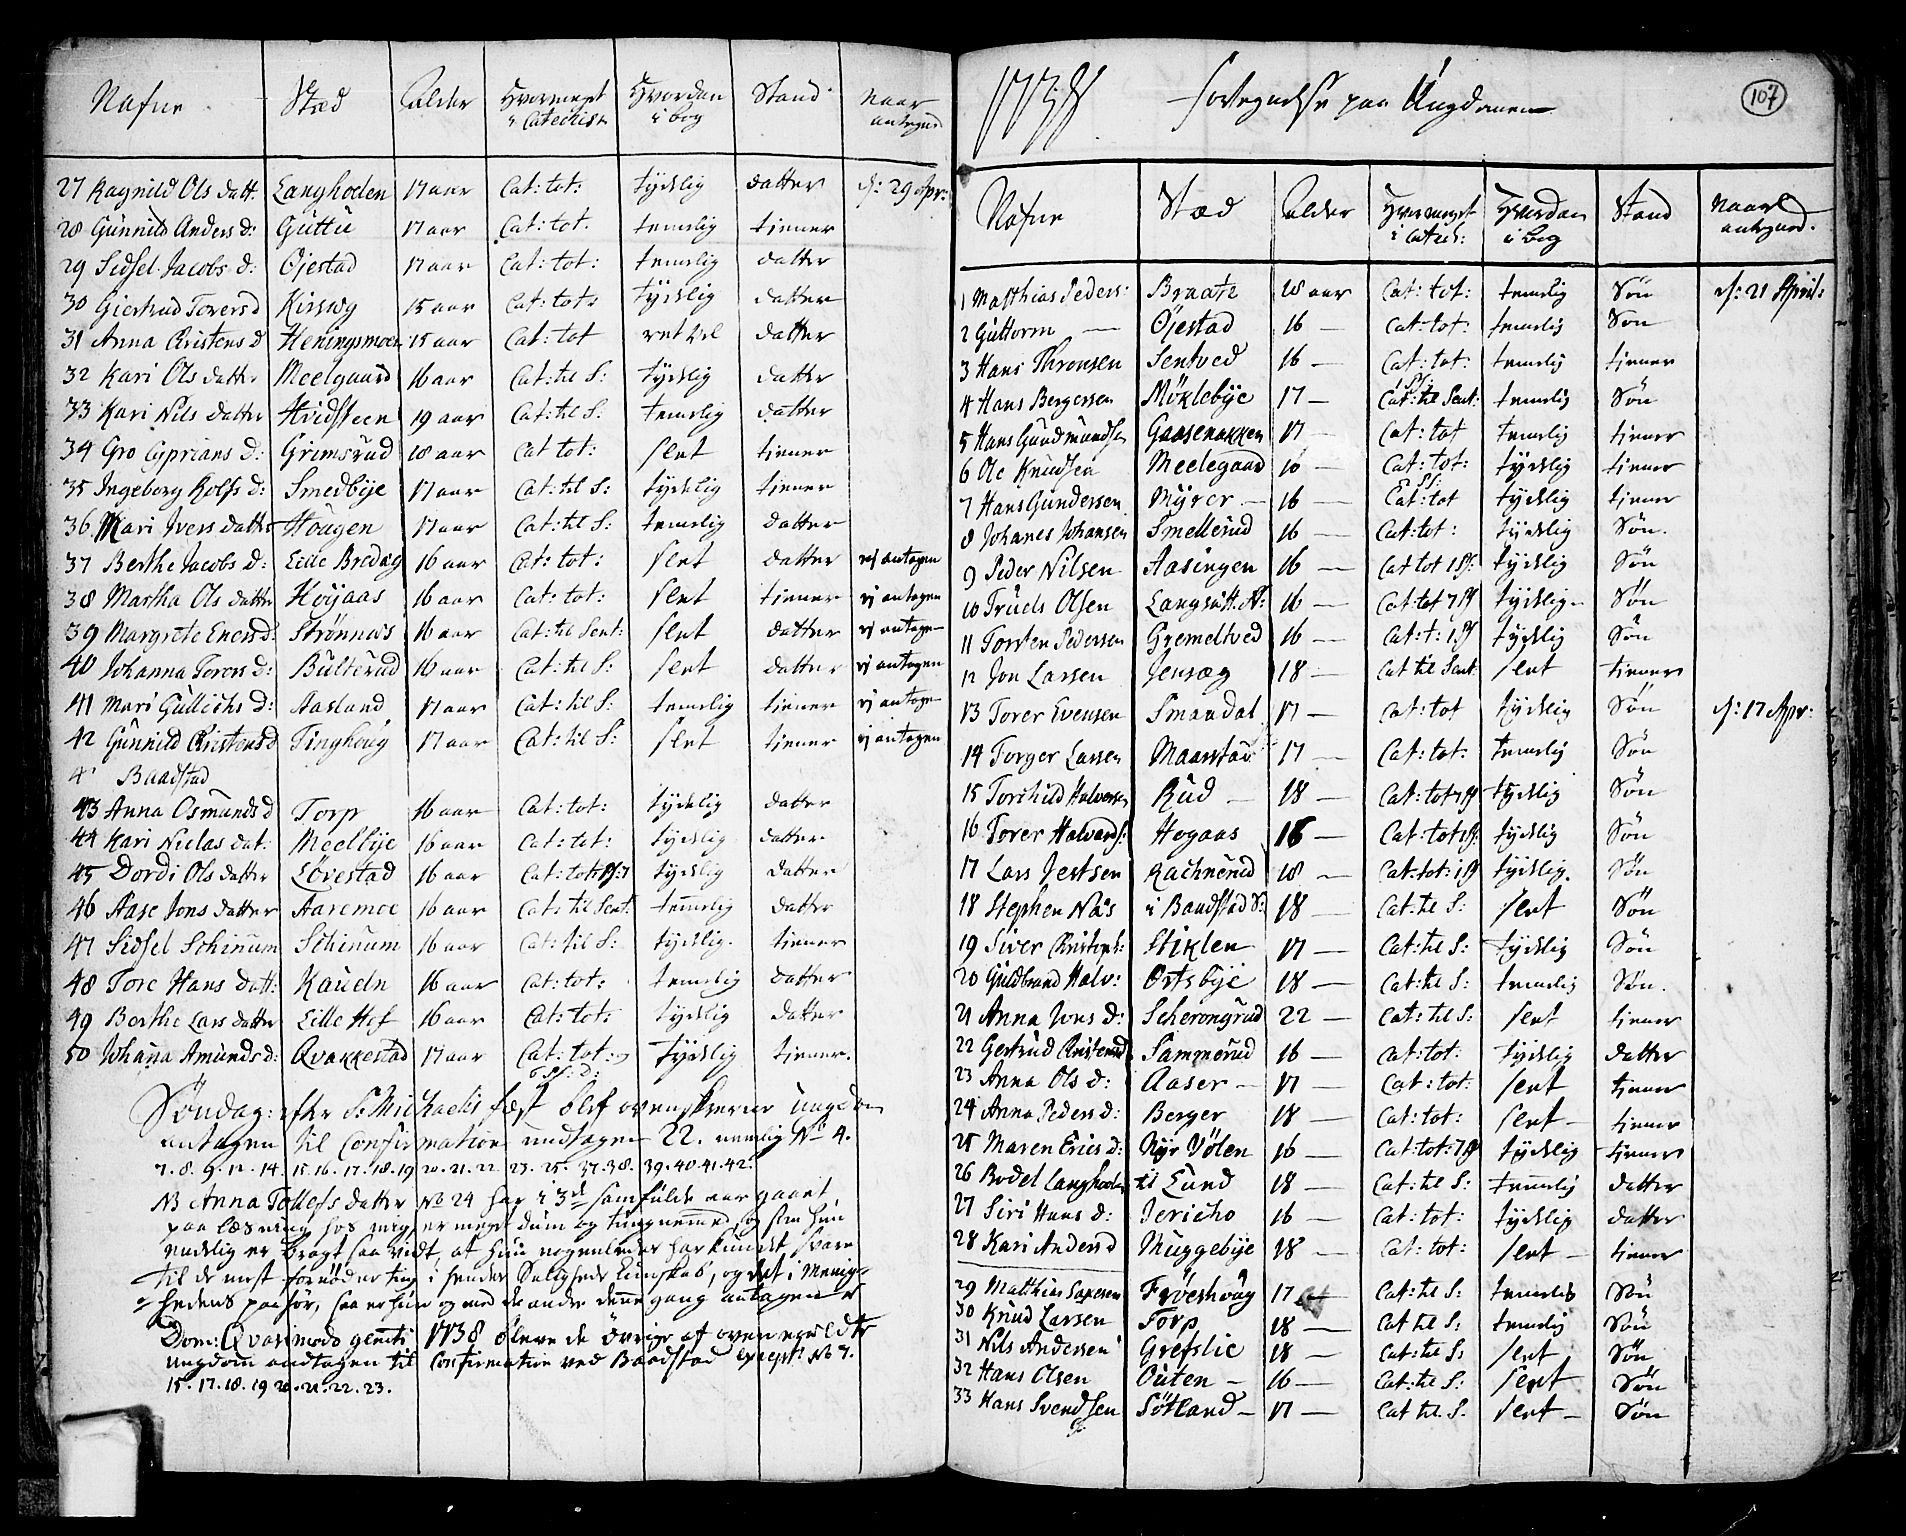 Nafne Stæd Alder Hvormeget i Catechism Hvordan i bog Stand Naar antegned
27 Ragnild Ols datt: Langhoden 17 aar Cat: tot: tydelig datter d: 29 Apr:
28 Gunnild Anders d: Guttu 17 aar Cat: tot: temelig tiener
29 Sidsel Jacobs d: Ojestad 17 aar Cat: tot: temelig datter
30 Giertrud Torersd Kirsvg 15 aar Cat: tot: tydelig datter
31 Anna Cristens d Heningsmoen 15 aar Cat: tot ret vel datter
32 Kari Ols datter Meelgaard 16 aar Cat: til S: tydelig datter
33 Kari Nils datter Hvidsteen 19 aar Cat: til S: temelig datter
34 Gro Cyprians d: Grimsrud 18 aar Cat tot: slet tiener
35 Ingeborg Rolfs d: Smedbye 17 aar Cat: til S: tydelig tiener
36 Mari Ivers datter Hougen 17 aar Cat: til S: temelig datter
37 Berthe Jacobs d: Lille Bredeg 16 aar Cat: tot: slet datter ej antagen
38 Martha Ols datter Høyaas 16 aar Cat: tot: slet tiener ej antagen
39 Margrete Enersd: Strønnæs 16 aar Cat: til Sent: slet datter ej antagen
40 Johanna Torers d: Bulterud 16 aar Cat: til S: slet datter ej antagen
41 Mari Gullichs d: Aasland 17 aar Cat: til S: temelig tiener ej antagen
42 Gunnild Cristens d Tinghoug 17 aar Cat: til S: slet tiener ej antagen
Baadstad
43 Anna Osmunds d Torp 16 aar Cat: tot: tydelig datter
44 Kari Nielas dat: Meelbye 16 aar Cat: tot: tydelig datter
45 Dordi Ols datter Lövestad 16 aar Cat: tot: tydelig datter
46 Aase Jons datter Aaremoe 16 aar Cat: til Sent: temelig datter
47 Sidsel Schinum Schinum 16 aar Cat: til S: tydelig tiener
48 Tore Hans datt: Kaueln 16 aar Cat: tot: temelig datter
49 Berthe Lars datter Lille Hof 16 aar Cat: tot: tydelig datter
50 Johana Amunds d: Qvakkestad 17 aar Cat: tot: tydelig tiener.
Søndag: efter S: Michaelis fæst blef ovenskrevne ungdom
antagen til Confirmation undtagen 22. nemlig No 4.
7. 8. 9. 12. 14. 15. 16. 17. 18. 19. 20. 21. 22. 23. 25. 37. 38. 39. 40. 41. 42.
NB Anna Tollefs datter No 24 har i 3de samfulde aar gaaet
paa læsning hos mig er meget dum og tungnemed, og som hun
endelig er bragt saa vidt, at hun nogenledes har kundet svare
til de mest fornødne ting i hendes Saligheds Kundskab, og det i Menig-
hedens paahør, saa er hun og med de andre denne gang antagen
Dom: Qvasimodo geniti 1738 bleve de övrige af oven meldte
ungdom andtagen til Confirmation ved Baadstad except: No 7.
15. 17. 18. 19 20. 21. 22. 23.
107
1738 Fortegnelse paa Ungdommen
Nafne Stæd Alder Hvormeget i Catech: Hvordan i bog Stand Naar antegned.
1 Matthias Peders: Braate 18 aar Cat: tot: temelig Søn d: 21 April:
2 Guttorm — Ojestad 16 — Cat: tot: temelig Søn
3 Hans Thronsen Sentved 16 — Cat: tot: temelig tiener
4 Hans Bergersen Möklebye 17 — Cat: til Sent: temelig Søn
5 Hans Gundmundsen Gaasenakken 17 — Cat: tot temelig tiener
6 Ole Knudsen Meelegaard 16 — Cat: tot: tydelig tiener
7 Hans Gundersen Myrer — 16 — Cat: tot tydelig tiener
8 Johanes Johansen Smellerud 16 — Cat: tot: tydelig Søn.
9 Peder Nilsen Aasingen 16 — Cat tot 1 Ps: tydelig Søn
10 Truels Olsen Langsætt. N: 16 — Cat: tot 7 Ps tydelig Søn
11 Torsten Pedersen Gremeltved 16 — Cat: t: 1 Ps tydelig Søn
12 Jon Larsen Jensæg 18 — Cat til Sent. slet tiener
13 Torer Evensen Smaadal 17 — Cat: tot tydelig Søn d: 17 Apr:
14 Torger Larsen Maarstad 17 — Cat: tot: temelig Søn
15 Torchild Halvorsen Rud — 18 — Cat: tot 7 Ps tydelig Søn
16 Torer Halvords: Hogaas 16 — Cat: tot 1 Ps: tydelig Søn
17 Lars Jertsen Rachnerud 18 — Cat: tot: 1 Ps tydelig. Søn
18 Stephen Næs i Baadstad S: 18 — Cat: til S: slet Søn
19 Siver Cristens: Stiklen 17 — Cat: til S: tydelig Søn
20 Guldbrand Halv: Ortsbye 18 — Cat: til S: temelig Søn.
21 Anna Jons d: Scherongrud 22 — Cat: til S: slet tiener
22 Gertrud Cristensd Sammerud 16 — Cat: tot: tydelig datter
23 Anna Ols d: Aaser — 17 — Cat: tot: slet tiener
24 Anna Peders d: Berger 18 — Cat: tot: slet — tiener
25 Maren Erics d: Nyr Völen 16 — Cat: tot: 7 Ps tydelig tiener
26 Bodel Langhoden til Lund 18 — Cat: til S: temelig datter
27 Siri Hans d: Jericho 16 — Cat: tot: tydelig datter
28 Kari Anders d Muggebye 18 — Cat: tot: slet — tiener
29 Matthis Larsen Fröeshoug 17 Cat: til S: temelig Søn
30 Knud Larsen Torp 18 — Cat til S: temelig Søn
31 Nils Andersen Grefslie 18 — Cat: til S: slet Søn
32 Hans Olsen Outen — 16 — Cat: til S: slet Søn
33 Hans Svendsen Sötland — 17 — Cat til S. slet — Søn